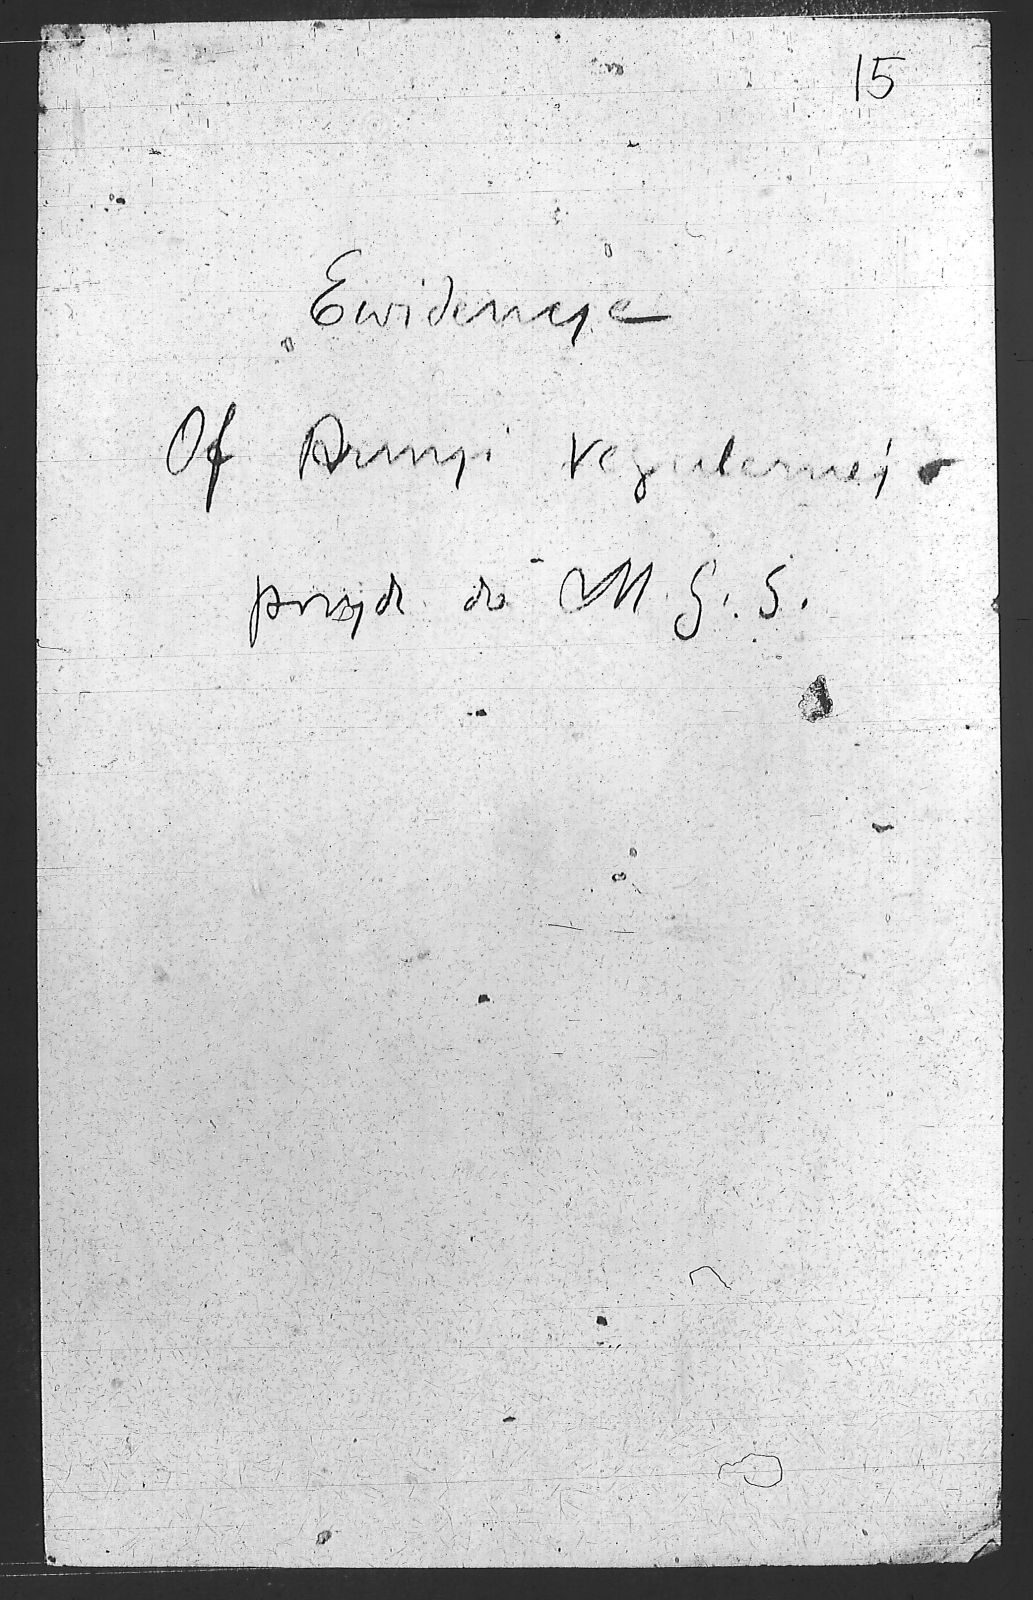 15
Ewidencje
Of Armyi regularnej
przyd. do M. G. G.